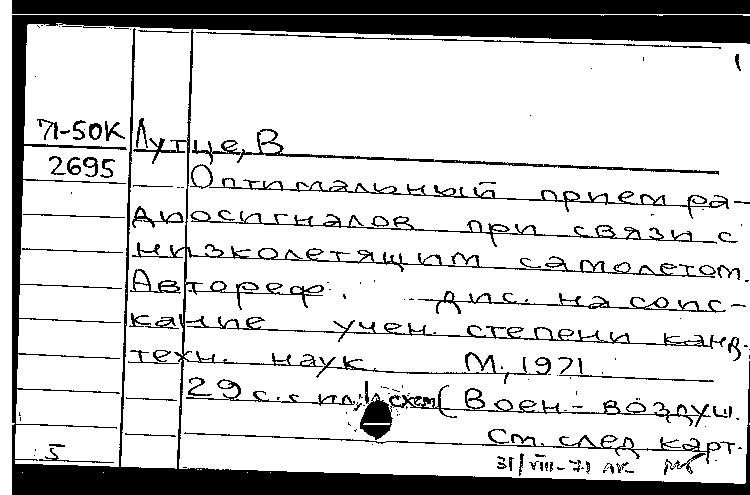 1
71-50К Лутце, В
2695
Оптимальный прием ра-
диосигналов при связи с
низколетящим самолетом.
Автореф. дис. на соис-
кание учен. степени канд.
техн. наук. М., 1971.
29 с. с ил., схем (Воен.-воздуш.
См. след карт.
5
31/VIII-71 АК